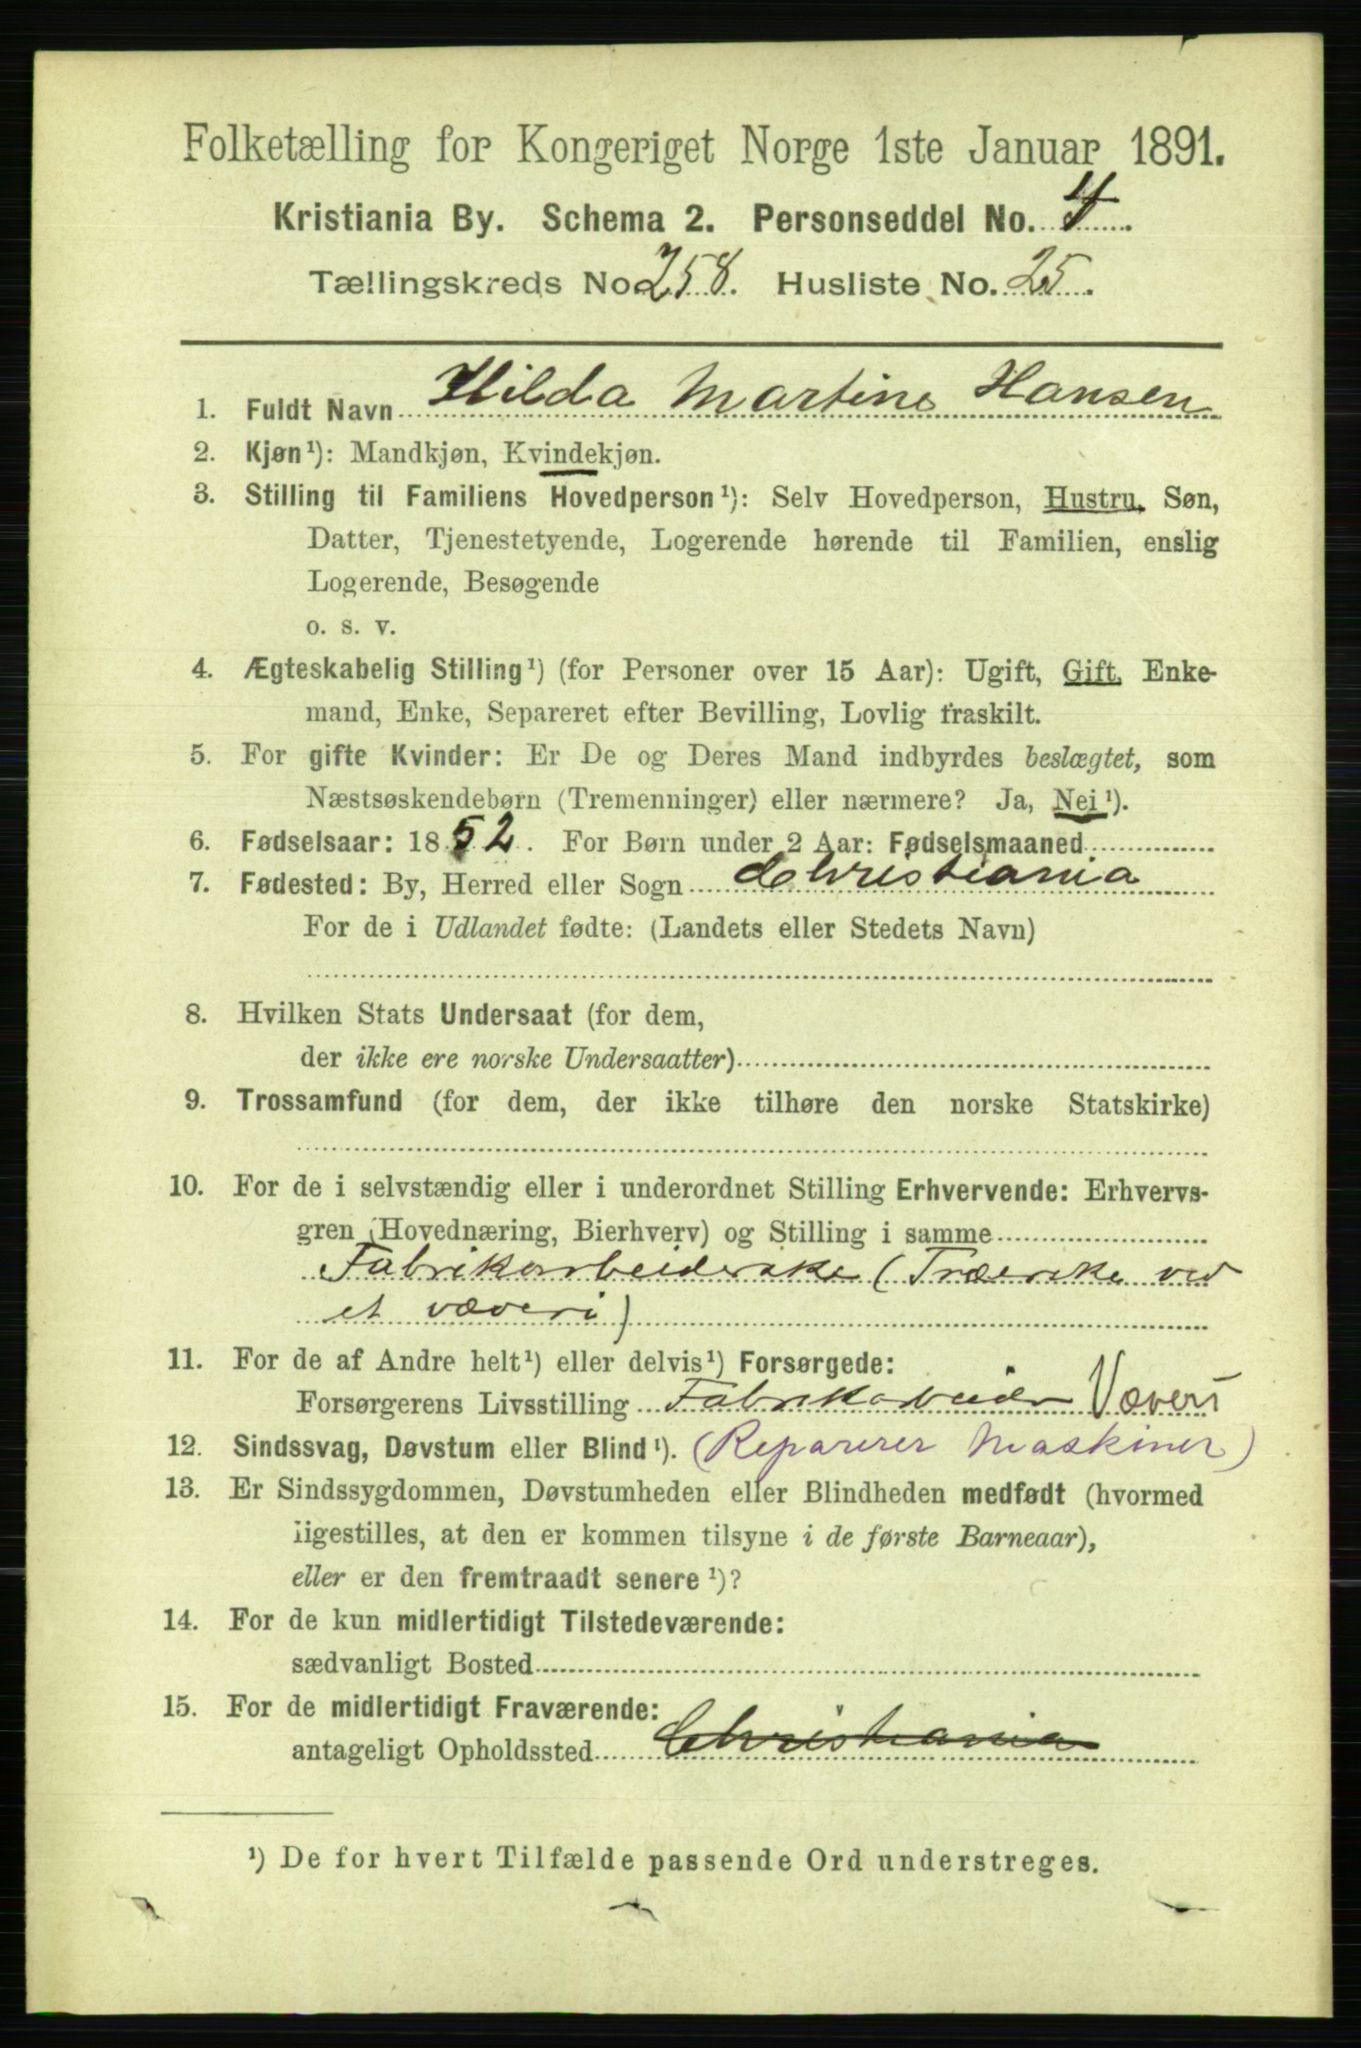 Folketælling for Kongeriget Norge 1ste Januar 1891.
Kristiania By. Schema 2. Personseddel No. 4
Tællingskreds No. 258. Husliste No. 25.
1. Fuldt Navn Hilda Martine Hansen
2. Kjøn¹): Mandkjøn, Kvindekjøn.
3. Stilling til Familiens Hovedperson¹): Selv Hovedperson, Hustru, Søn,
Datter, Tjenestetyende, Logerende hørende til Familien, enslig
Logerende, Besøgende
o. s. v.
4. Ægteskabelig Stilling¹) (for Personer over 15 Aar): Ugift, Gift, Enke-
mand, Enke, Separeret efter Bevilling, Lovlig fraskilt.
5. For gifte Kvinder: Er De og Deres Mand indbyrdes beslægtet, som
Næstsøskendebørn (Tremenninger) eller nærmere? Ja, Nei¹).
6. Fødselsaar: 1852. For Børn under 2 Aar: Fødselsmaaned
7. Fødested: By, Herred eller Sogn Christiania
For de i Udlandet fødte: (Landets eller Stedets Navn)
8. Hvilken Stats Undersaat (for dem,
der ikke ere norske Undersaatter)
9. Trossamfund (for dem, der ikke tilhøre den norske Statskirke)
10. For de i selvstændig eller i underordnet Stilling Erhvervende: Erhvervs-
gren (Hovednæring, Bierhverv) og Stilling i samme
Fabrikarbeiderske (Træerske ved
et væveri)
11. For de af Andre helt¹) eller delvis¹) Forsørgede:
Forsørgerens Livsstilling Fabrikarbeider Væveri
12. Sindssvag, Døvstum eller Blind¹). (Reparerer Maskiner)
13. Er Sindssygdommen, Døvstumheden eller Blindheden medfødt (hvormed
ligestilles, at den er kommen tilsyne i de første Barneaar),
eller er den fremtraadt senere¹)?
14. For de kun midlertidigt Tilstedeværende:
sædvanligt Bosted
15. For de midlertidigt Fraværende:
antageligt Opholdssted Christiania
¹) De for hvert Tilfælde passende Ord understreges.